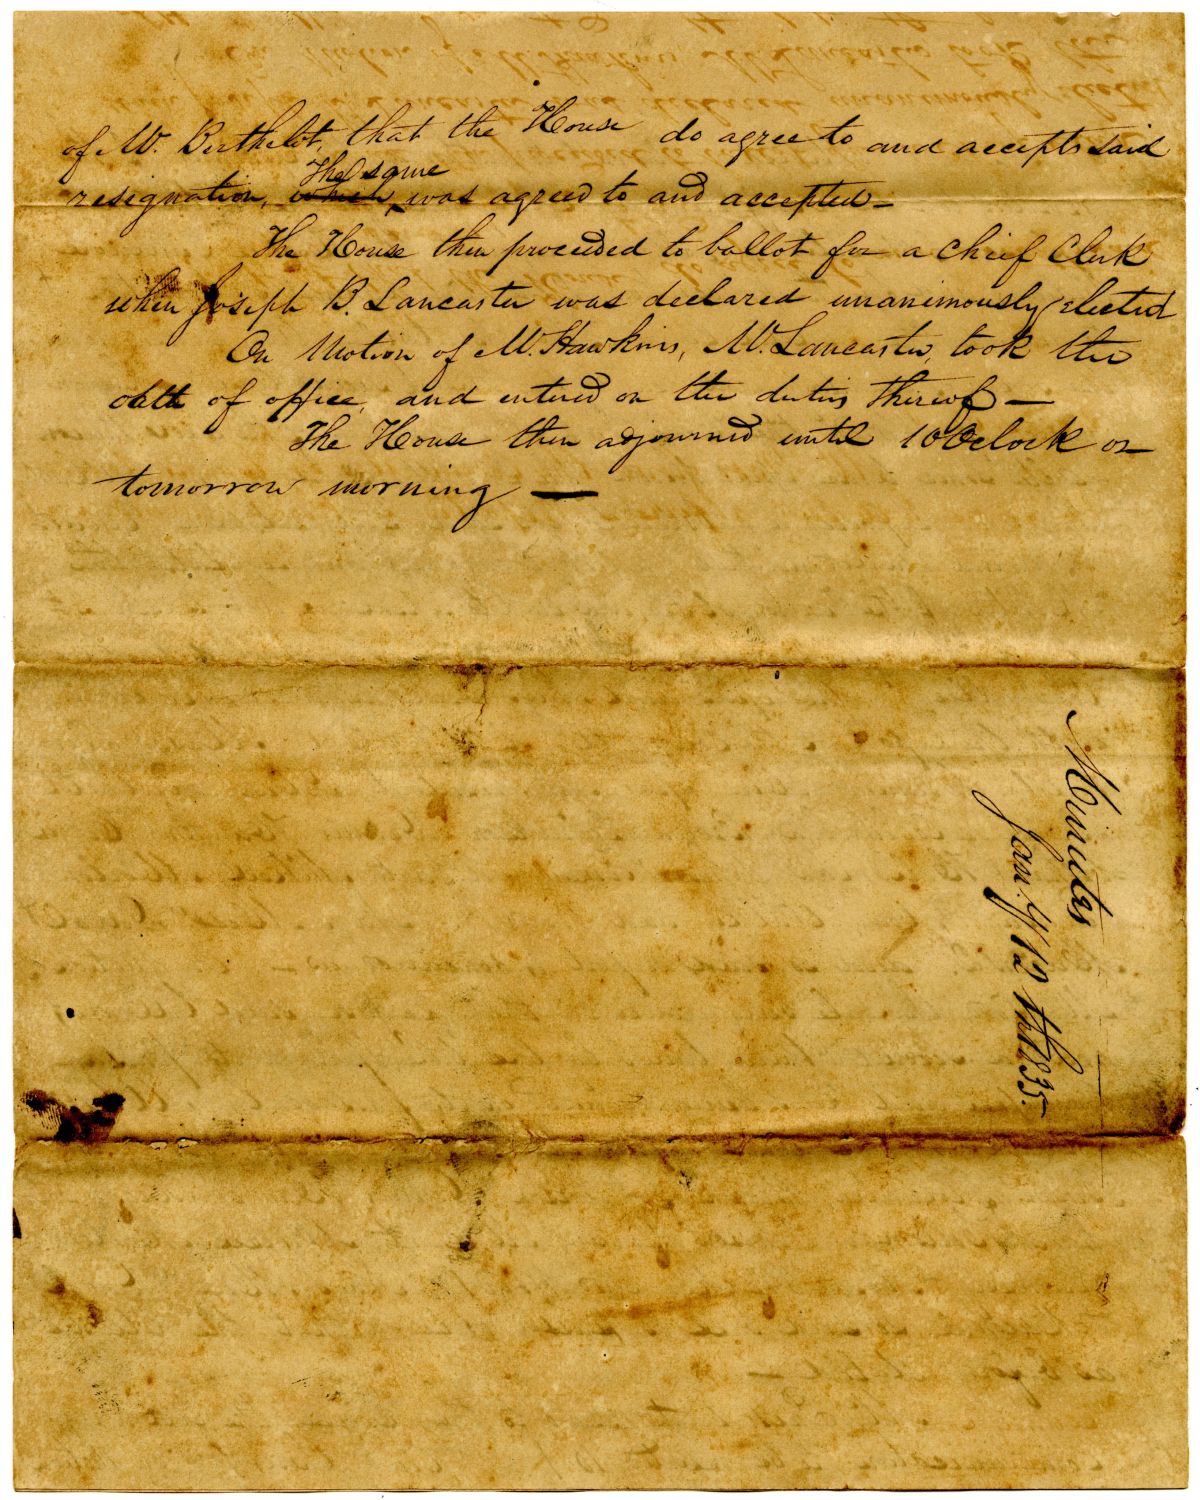 of Mr. Berthelot, that the House do agree to and accepts said
The same
resignation, which, was agreed to and accepted —
The House then proceeded to ballot for a Chief Clerk
when Joseph B. Lancaster was declared unanimously elected
On Motion of Mr. Hawkins, Mr. Lancaster, took the
oath of office, and entered on the duties thereof —
The House then adjourned until 10 OClock on
tomorrow morning —
Minutes
Jan.y 12th 1835.